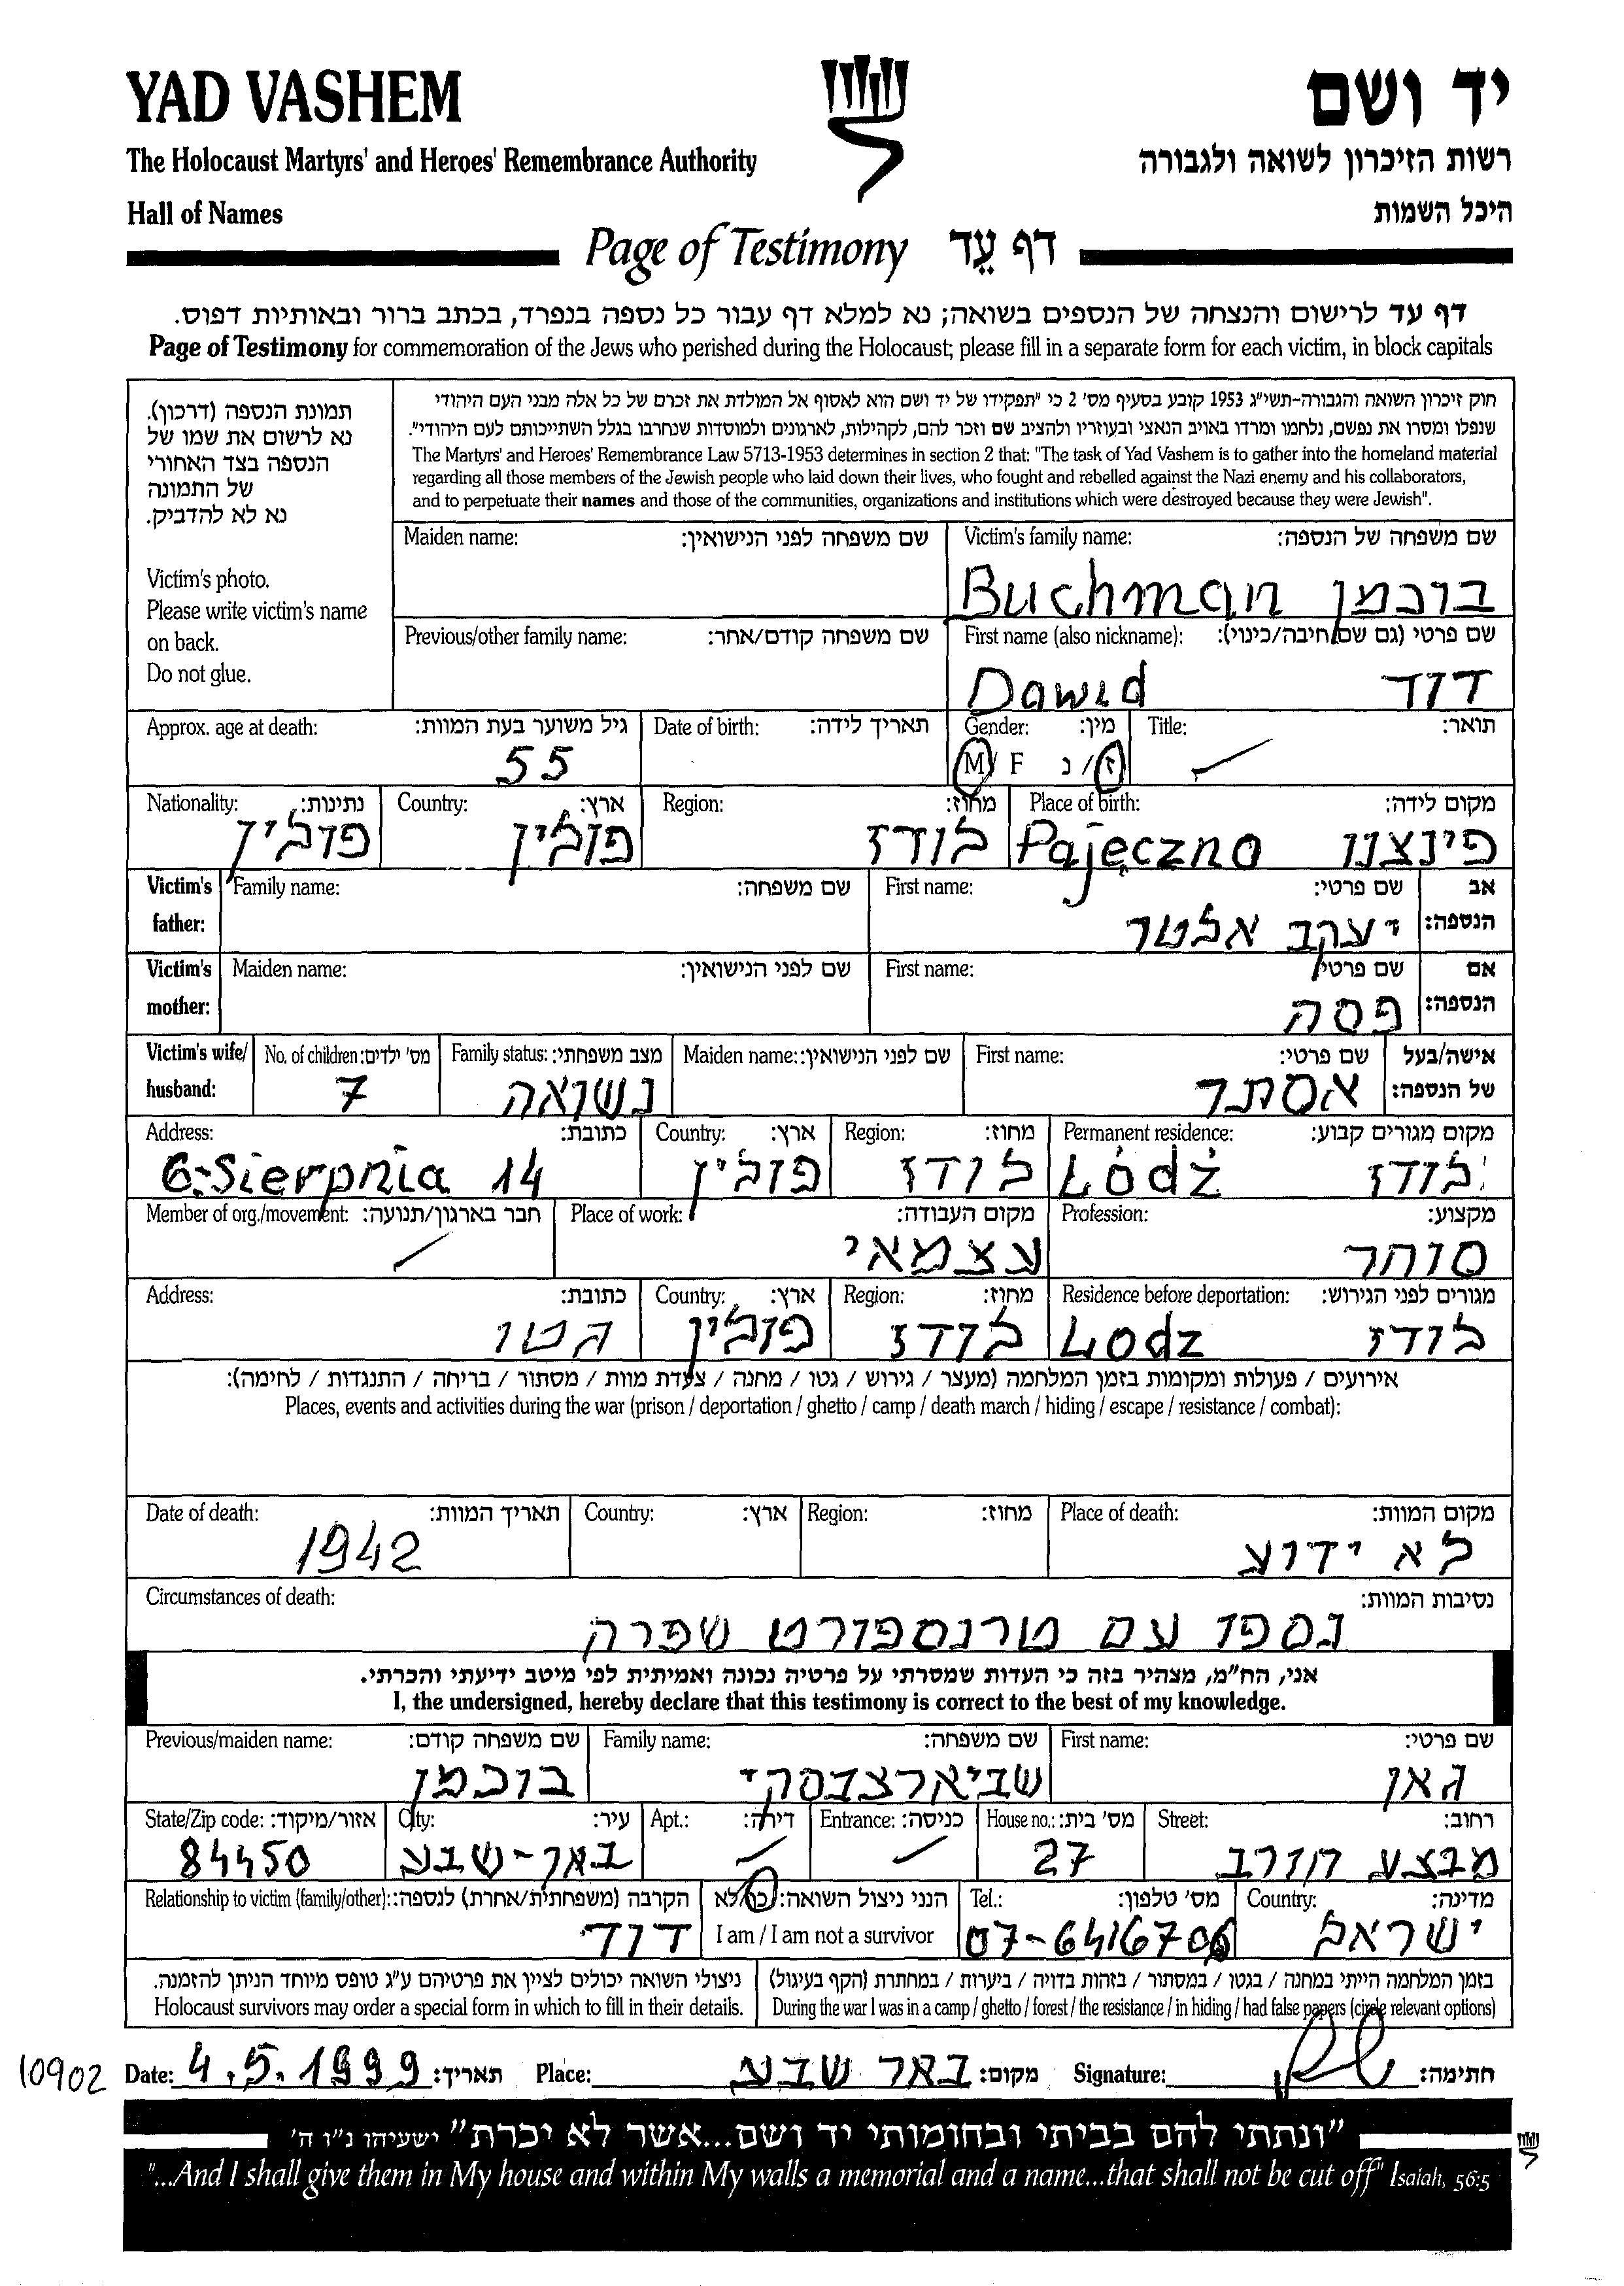 YAD VASHEM
יד ושם
The Holocaust Martyrs' and Heroes' Remembrance Authority
רשות הזיכרון לשואה ולגבורה
Hall of Names
היכל השמות
Page of Testimony דף עֵד
דף עד לרישום והנצחה של הנספים בשואה; נא למלא דף עבור כל נספה בנפרד, בכתב ברור ובאותיות דפוס.
Page of Testimony for commemoration of the Jews who perished during the Holocaust; please fill in a separate form for each victim, in block capitals
תמונת הנספה (דרכון).
נא לרשום את שמו של
הנספה בצד האחורי
של התמונה
נא לא להדביק.
Victim's photo.
Please write victim's name
on back.
Do not glue.
חוק זיכרון השואה והגבורה-תשי"ג 1953 קובע בסעיף מס' 2 כי "תפקידו של יד ושם הוא לאסוף אל המולדת את זכרם של כל אלה מבני העם היהודי
שנפלו ומסרו את נפשם, נלחמו ומרדו באויב הנאצי ובעוזריו ולהציב שם וזכר להם, לקהילות, לארגונים ולמוסדות שנחרבו בגלל השתייכותם לעם היהודי".
The Martyrs' and Heroes' Remembrance Law 5713-1953 determines in section 2 that: "The task of Yad Vashem is to gather into the homeland material
regarding all those members of the Jewish people who laid down their lives, who fought and rebelled against the Nazi enemy and his collaborators,
and to perpetuate their names and those of the communities, organizations and institutions which were destroyed because they were Jewish".
Maiden name: שם משפחה לפני הנישואין:
Victim's family name: שם משפחה של הנספה:
Buchman בוכמן
Previous/other family name: שם משפחה קודם/אחר:
First name (also nickname): שם פרטי (גם שם חיבה/כינוי):
Dawid דוד
Approx. age at death: גיל משוער בעת המוות:
55
Date of birth: תאריך לידה:
Gender: מין:
M / F ז / נ
Title: תואר:
Nationality: נתינות:
פולין
Country: ארץ:
פולין
Region: מחוז:
לודז
Place of birth: מקום לידה:
Pajęczno פינצנו
Victim's father: אב הנספה:
Family name: שם משפחה:
First name: שם פרטי:
יעקב אלטר
Victim's mother: אם הנספה:
Maiden name: שם לפני הנישואין:
First name: שם פרטי:
פסה
Victim's wife/ husband: אישה/בעל של הנספה:
No. of children: מס' ילדים:
7
Family status: מצב משפחתי:
נשואה
Maiden name: שם לפני הנישואין:
First name: שם פרטי:
אסתר
Address: כתובת:
6-Sierpnia 14
Country: ארץ:
פולין
Region: מחוז:
לודז
Permanent residence: מקום מגורים קבוע:
Lódź לודז
Member of org./movement: חבר בארגון/תנועה:
Place of work: מקום העבודה:
עצמאי
Profession: מקצוע:
סוחר
Address: כתובת:
גטו
Country: ארץ:
פולין
Region: מחוז:
לודז
Residence before deportation: מגורים לפני הגירוש:
Lodz לודז
אירועים / פעולות ומקומות בזמן המלחמה (מעצר / גירוש / גטו / מחנה / צעדת מוות / מסתור / בריחה / התנגדות / לחימה):
Places, events and activities during the war (prison / deportation / ghetto / camp / death march / hiding / escape / resistance / combat):
Date of death: תאריך המוות:
1942
Country: ארץ:
Region: מחוז:
Place of death: מקום המוות:
לא ידוע
Circumstances of death: נסיבות המוות:
נספו עם טרנספורט שפרה
אני, הח"מ, מצהיר בזה כי העדות שמסרתי על פרטיה נכונה ואמיתית לפי מיטב ידיעתי והכרתי.
I, the undersigned, hereby declare that this testimony is correct to the best of my knowledge.
Previous/maiden name: שם משפחה קודם:
בוכמן
Family name: שם משפחה:
שביארצבסקי
First name: שם פרטי:
גאן
State/Zip code: אזור/מיקוד:
84450
City: עיר:
באר-שבע
Apt.: דירה:
Entrance: כניסה:
House no.: מס' בית:
27
Street: רחוב:
מבצע חורב
Relationship to victim (family/other): הקרבה (משפחתית/אחרת) לנספה:
דוד
הנני ניצול השואה: כן/לא
I am / I am not a survivor
Tel.: מס' טלפון:
07-6416706
Country: מדינה:
ישראל
ניצולי השואה יכולים לציין את פרטיהם ע"ג טופס מיוחד הניתן להזמנה.
Holocaust survivors may order a special form in which to fill in their details.
בזמן המלחמה הייתי במחנה / בגטו / במסתור / בזהות בדויה / ביערות / במחתרת (הקף בעיגול)
During the war I was in a camp / ghetto / forest / the resistance / in hiding / had false papers (circle relevant options)
10902
Date: 4.5.1999 תאריך: Place: באר שבע מקום: Signature: חתימה:
"ונתתי להם בביתי ובחומותי יד ושם...אשר לא יכרת" ישעיהו נ"ו ה'
"...And I shall give them in My house and within My walls a memorial and a name...that shall not be cut off" Isaiah, 56:5